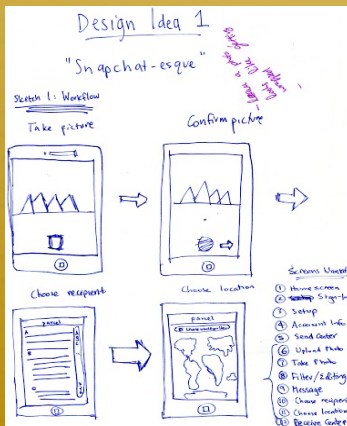 Design Idea 1
"Snapchat-esque"
Sketch 1: Workflow
Take picture
Confirm picture
Choose recipient
Choose location
parcel
parcel
Screens
① Home screen
② Sign-
③ Setup
④ Account Info
⑤ Send Center
⑥ Upload Photo
⑦ Take Photo
⑧ Filter/Editing
⑨ Message
⑩ Choose
⑪ Choose
⑫ Receive Center